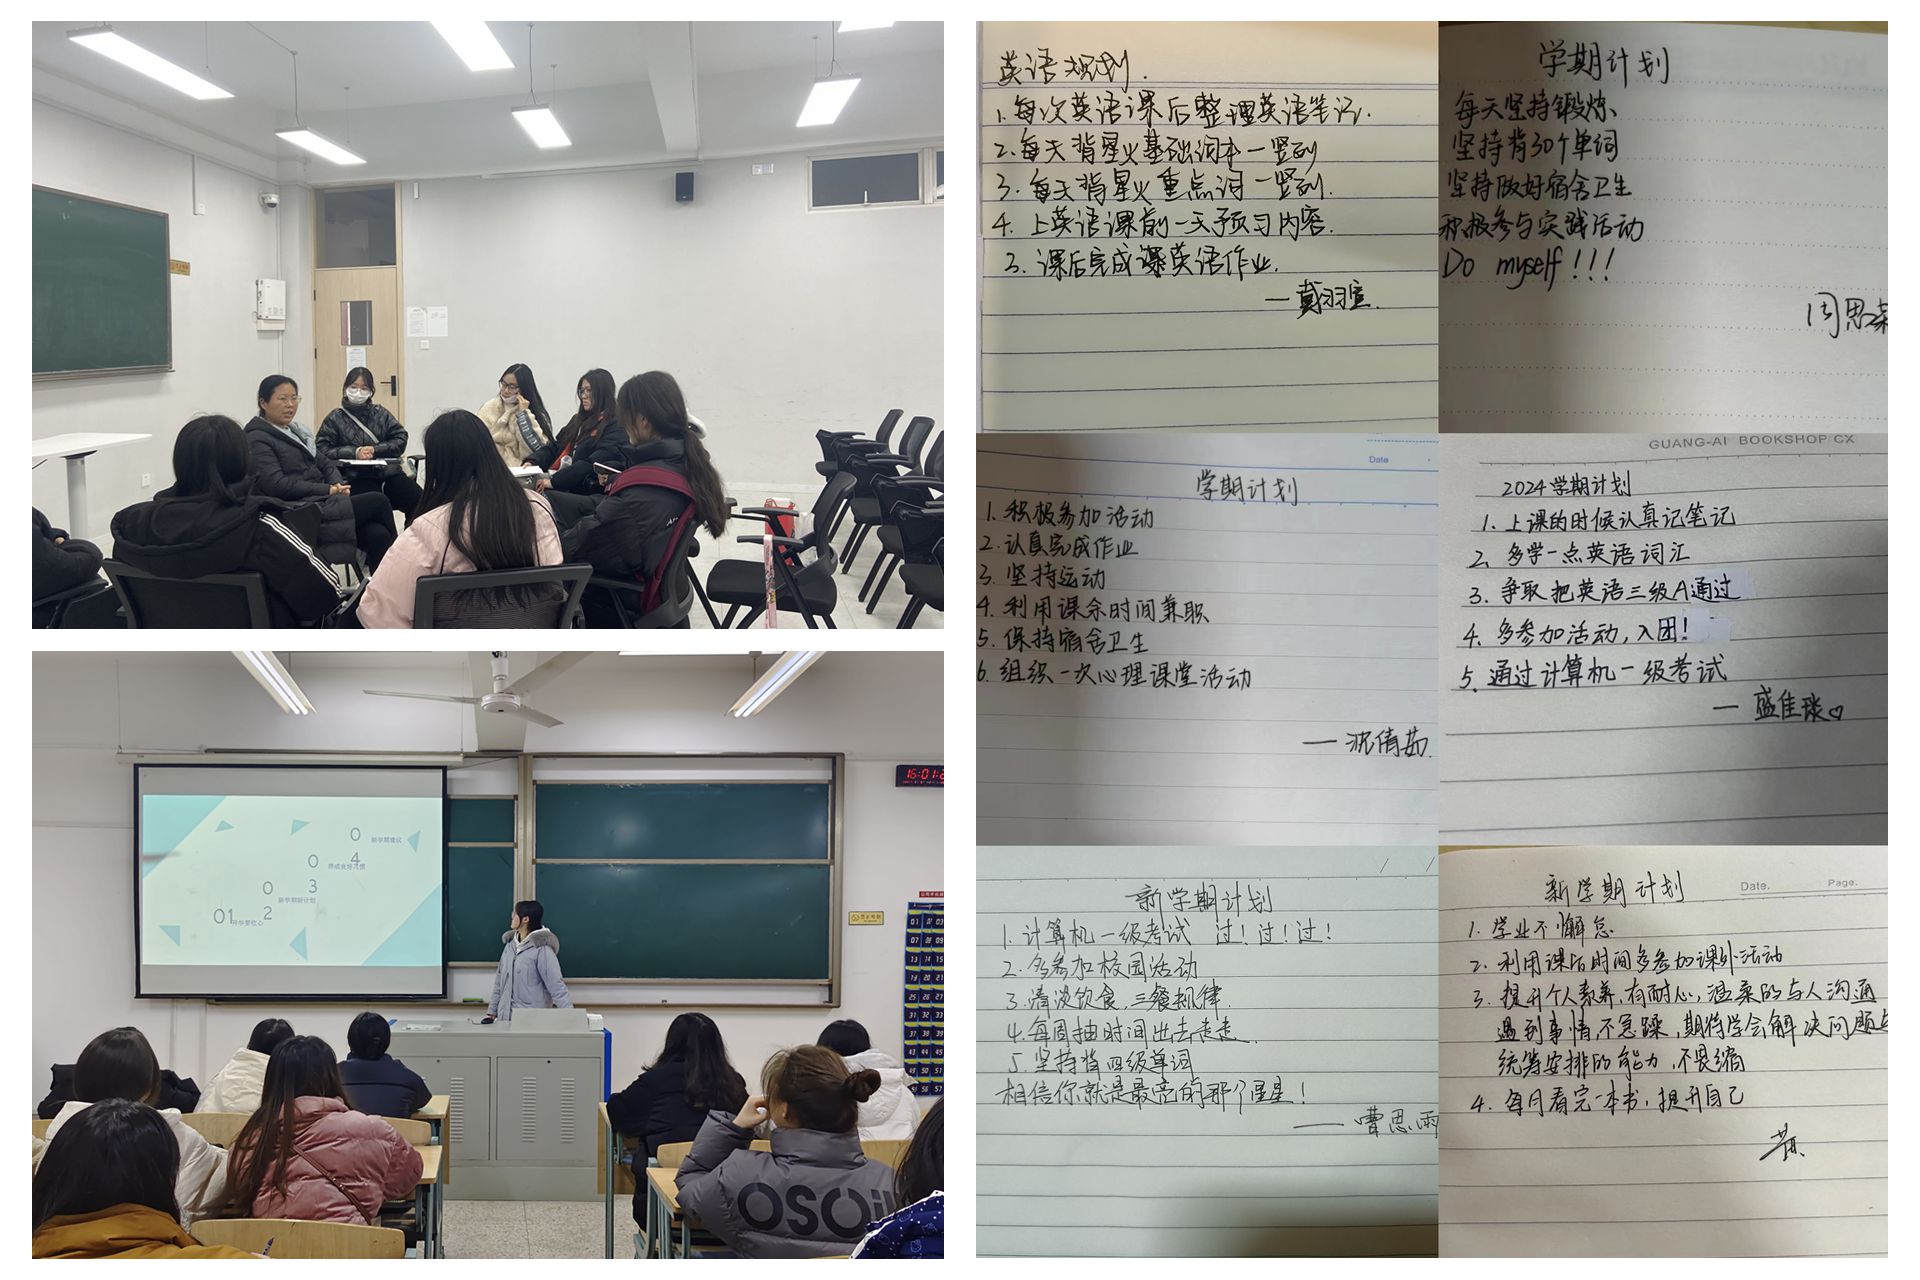 16:01:2
0
新学期建议
0
4
养成良好习惯
0
3
新学期新计划
0
2
01
开学要收心
OSOi
英语规划.
1.每次英语课后整理英语笔记.
2.每天背星火基础词本一竖列
3.每天背星火重点词一竖列.
4.上英语课前一天预习内容.
3.课后完成课英语作业.
—戴羽萱.
学期计划
每天坚持锻炼、
坚持背30个单词
坚持做好宿舍卫生
积极参与实践活动
Do myself!!!
周思
Date
学期计划
1.积极参加活动
2.认真完成作业
3.坚持运动
4.利用课余时间兼职
5.保持宿舍卫生
6.组织一次心理课堂活动
—沈倩茹.
GUANG-AI BOOKSHOP CX
2024学期计划
1.上课的时候认真记笔记
2.多学一点英语词汇
3.争取把英语三级A通过
4.多参加活动,入团!
5.通过计算机一级考试
—盛佳琰
新学期计划
1.计算机一级考试 过!过!过!
2.多参加校园活动
3.清淡饮食,三餐规律.
4.每周抽时间出去走走.
5.坚持背四级单词
相信你就是最亮的那个星星!
—曹思雨
Date. Page.
新学期计划
1.学业不懈怠
2.利用课后时间多参加课外活动
3.提升个人素养,有耐心,温柔的与人沟通
遇到事情不急躁,期待学会解决问题
统筹安排的能力,不畏缩
4.每月看完一本书,提升自己